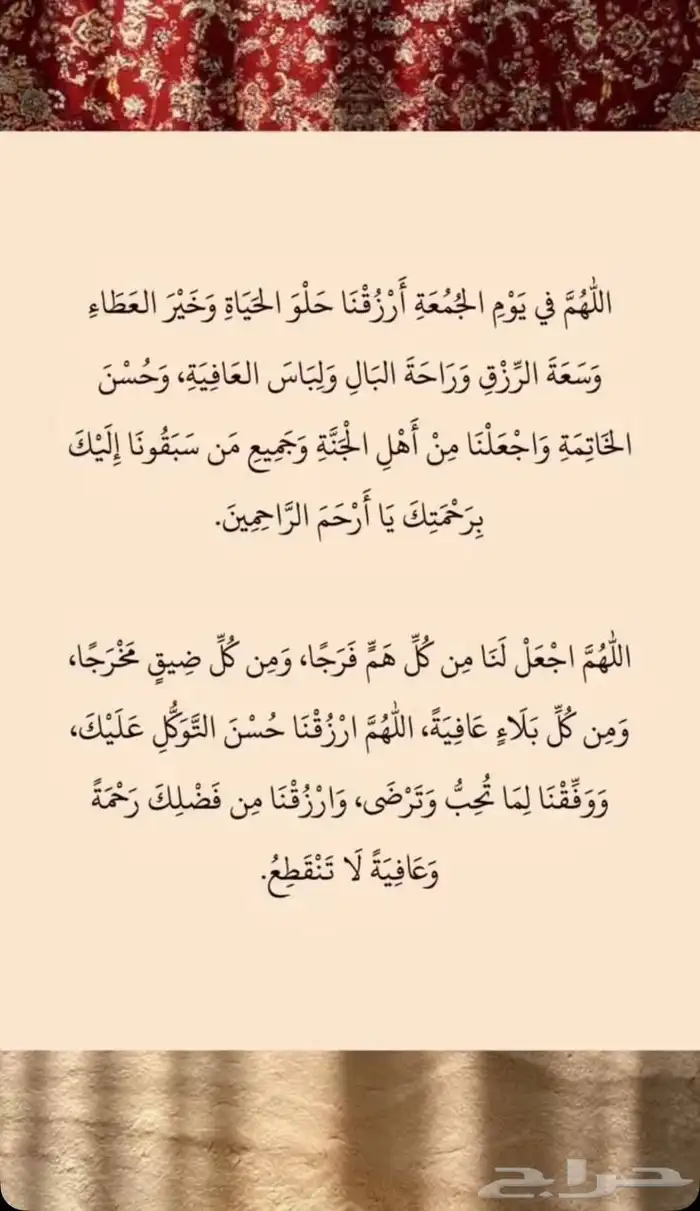 اللَّهُمَّ في يَوْمِ الجُمُعَةِ أَرْزُقْنَا حَلْوَ الحَيَاةِ وَخَيْرَ العَطَاءِ
وَسَعَةَ الرِّزْقِ وَرَاحَةَ البَالِ وَلِبَاسَ العَافِيَةِ، وَحُسْنَ
الخَاتِمَةِ وَاجْعَلْنَا مِنْ أَهْلِ الْجَنَّةِ وَجَمِيعِ مَن سَبَقُونَا إِلَيْكَ
بِرَحْمَتِكَ يَا أَرْحَمَ الرَّاحِمِينَ.
اللَّهُمَّ اجْعَلْ لَنَا مِن كُلِّ هَمٍّ فَرَجًا، وَمِن كُلِّ ضِيقٍ مَخْرَجًا،
وَمِن كُلِّ بَلَاءٍ عَافِيَةً، اللَّهُمَّ ارْزُقْنَا حُسْنَ التَّوَكُّلِ عَلَيْكَ،
وَوَفِّقْنَا لِمَا تُحِبُّ وَتَرْضَى، وَارْزُقْنَا مِن فَضْلِكَ رَحْمَةً
وَعَافِيَةً لَا تَنْقَطِعُ.
حراج